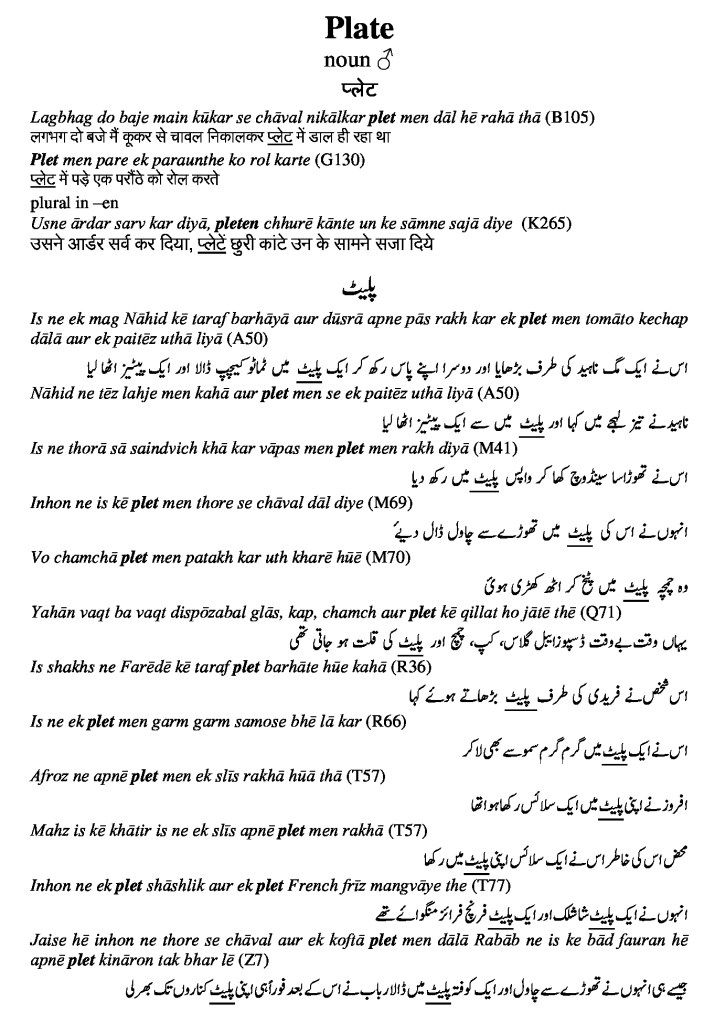 Plate
noun ♂
प्लेट
Lagbhag do baje main kūkar se chāval nikālkar plet men dāl hē rahā thā (B105)
लगभग दो बजे मैं कूकर से चावल निकालकर प्लेट में डाल ही रहा था
Plet men pare ek paraunthe ko rol karte (G130)
प्लेट में पड़े एक परौंठे को रोल करते
plural in –en
Usne ārdar sarv kar diyā, pleten chhurē kānte un ke sāmne sajā diye (K265)
उसने आर्डर सर्व कर दिया, प्लेटें छुरी कांटे उन के सामने सजा दिये
پلیٹ
Is ne ek mag Nāhid kē taraf barhāyā aur dūsrā apne pās rakh kar ek plet men tomāto kechap
dālā aur ek paitēz uthā liyā (A50)
اس نے ایک مگ ناہید کی طرف بڑھایا اور دوسرا اپنے پاس رکھ کر ایک پلیٹ میں ٹماٹو کیچپ ڈالا اور ایک پیٹیز اٹھا لیا
Nāhid ne tēz lahje men kahā aur plet men se ek paitēz uthā liyā (A50)
ناہید نے تیز لہجے میں کہا اور پلیٹ میں سے ایک پیٹیز اٹھا لیا
Is ne thorā sā saindvich khā kar vāpas men plet men rakh diyā (M41)
اس نے تھوڑا سا سینڈوچ کھا کر واپس پلیٹ میں رکھ دیا
Inhon ne is kē plet men thore se chāval dāl diye (M69)
انہوں نے اس کی پلیٹ میں تھوڑے سے چاول ڈال دیۓ
Vo chamchā plet men patakh kar uth kharē hūē (M70)
وہ چمچہ پلیٹ میں پٹخ کر اٹھ کھڑی ہوئی
Yahān vaqt ba vaqt dispōzabal glās, kap, chamch aur plet kē qillat ho jātē thē (Q71)
یہاں وقت بے وقت ڈسپوزایبل گلاس، کپ، چمچ اور پلیٹ کی قلت ہو جاتی تھی
Is shakhs ne Farēdē kē taraf plet barhāte hūe kahā (R36)
اس شخص نے فریدی کی طرف پلیٹ بڑھاتے ہوئے کہا
Is ne ek plet men garm garm samose bhē lā kar (R66)
اس نے ایک پلیٹ میں گرم گرم سموسے بھی لا کر
Afroz ne apnē plet men ek slīs rakhā hūā thā (T57)
افروز نے اپنی پلیٹ میں ایک سلائس رکھا ہوا تھا
Mahz is kē khātir is ne ek slīs apnē plet men rakhā (T57)
محض اس کی خاطر اس نے ایک سلائس اپنی پلیٹ میں رکھا
Inhon ne ek plet shāshlik aur ek plet French frīz mangvāye the (T77)
انہوں نے ایک پلیٹ شاشلک اور ایک پلیٹ فرنچ فرائز منگوائے تھے
Jaise hē inhon ne thore se chāval aur ek koftā plet men dālā Rabāb ne is ke bād fauran hē
apnē plet kināron tak bhar lē (Z7)
جیسے ہی انہوں نے تھوڑے سے چاول اور ایک کوفتہ پلیٹ میں ڈالا رباب نے اس کے بعد فوراً ہی اپنی پلیٹ کناروں تک بھر لی